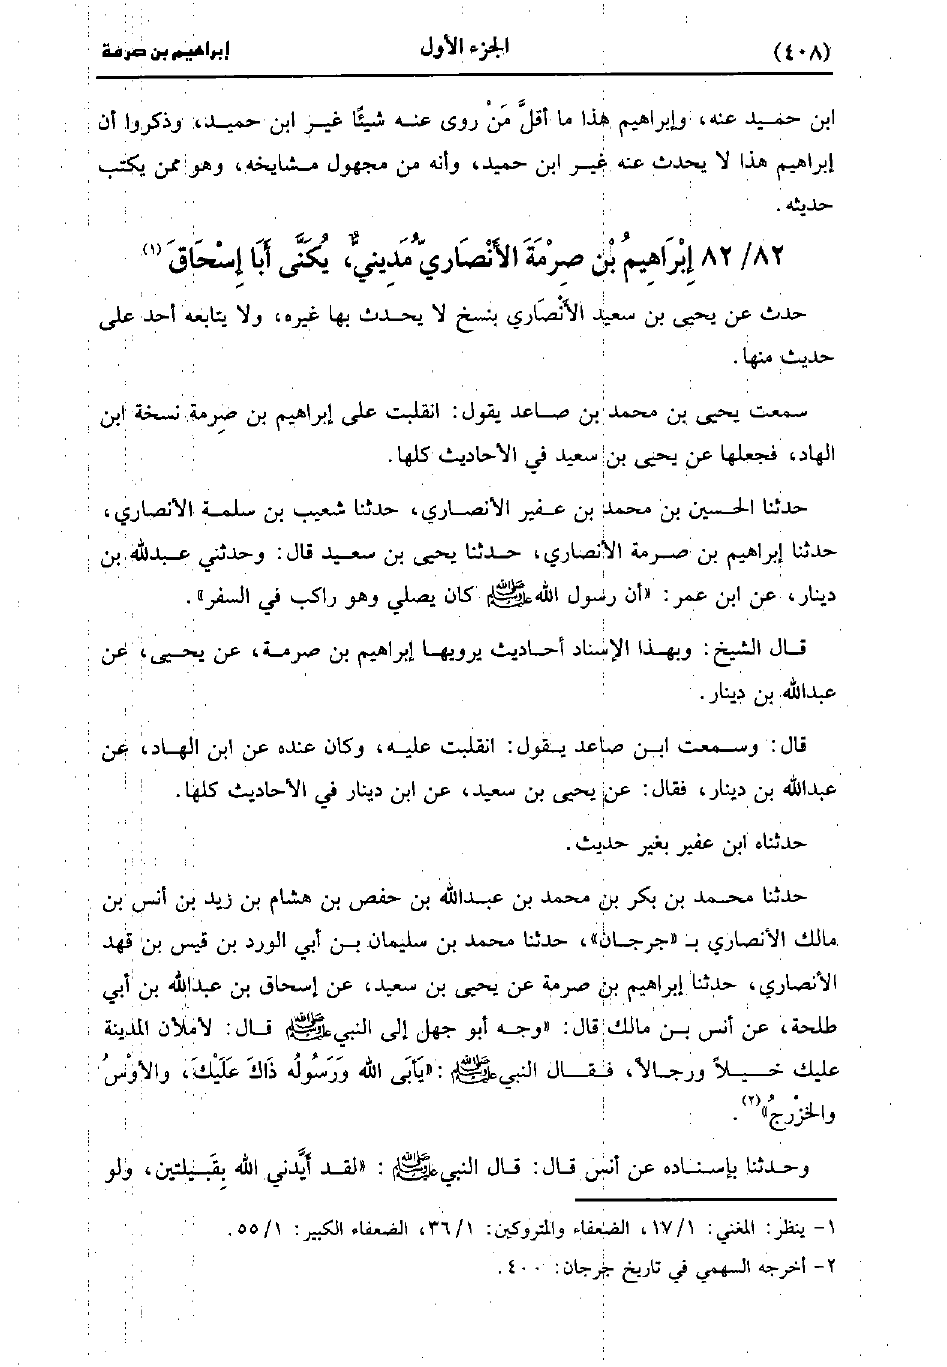 (٤٠٨) الجزء الأول إبراهيم بن صرفة
ابن حميد عنه، وإبراهيم هذا ما أقلَّ مَنْ روى عنه شيئًا غير ابن حميد، وذكروا أن
إبراهيم هذا لا يحدث عنه غير ابن حميد، وأنه من مجهول مشايخه، وهو ممن يكتب
حديثه.
٨٢/ ٨٢ إِبْرَاهِيمُ بْن صِرْمَةَ الأَنْصَاريُّ مَدِينيٌّ، يُكَنَّى أَبَا إِسْحَاقَ (١)
حدث عن يحيى بن سعيد الأَنْصَاري بنسخ لا يحدث بها غيره، ولا يتابعه أحد على
حديث منها.
سمعت يحيى بن محمد بن صاعد يقول: انقلبت على إبراهيم بن صرمة نسخة ابن
الهاد، فجعلها عن يحيى بن سعيد في الأحاديث كلها.
حدثنا الحسين بن محمد بن عفير الأنصاري، حدثنا شعيب بن سلمة الأنصاري،
حدثنا إبراهيم بن صرمة الأنصاري، حدثنا يحيى بن سعيد قال: وحدثني عبدالله بن
دينار، عن ابن عمر: «أن رسول الله ﷺ كان يصلي وهو راكب في السفر».
قال الشيخ: وبهذا الإسناد أحاديث يرويها إبراهيم بن صرمة، عن يحيى، عن
عبدالله بن دينار.
قال: وسمعت ابن صاعد يقول: انقلبت عليه، وكان عنده عن ابن الهاد، عن
عبدالله بن دينار، فقال: عن يحيى بن سعيد، عن ابن دينار في الأحاديث كلها.
حدثناه ابن عفير بغير حديث.
حدثنا محمد بن بكر بن محمد بن عبدالله بن حفص بن هشام بن زيد بن أنس بن
مالك الأنصاري بـ «جرجان»، حدثنا محمد بن سليمان بن أبي الورد بن قيس بن قهد
الأنصاري، حدثنا إبراهيم بن صرمة عن يحيى بن سعيد، عن إسحاق بن عبدالله بن أبي
طلحة، عن أنس بن مالك قال: «وجه أبو جهل إلى النبي ﷺ قال: لأملأن المدينة
عليك خيلاً ورجالاً، فقال النبي ﷺ: «يَأبَى الله وَرَسُولُه ذَاكَ عَلَيْكَ، والأوْسُ
والخزْرجُ» (٢).
وحدثنا بإسناده عن أنس قال: قال النبي ﷺ: «لقد أيَّدني الله بِقَبيلتين، ولو
١- ينظر: المغني: ١٧/١، الضعفاء والمتروكين: ٣٦/١، الضعفاء الكبير: ٥٥/١.
٢- أخرجه السهمي في تاريخ جرجان: ٤٠٠.